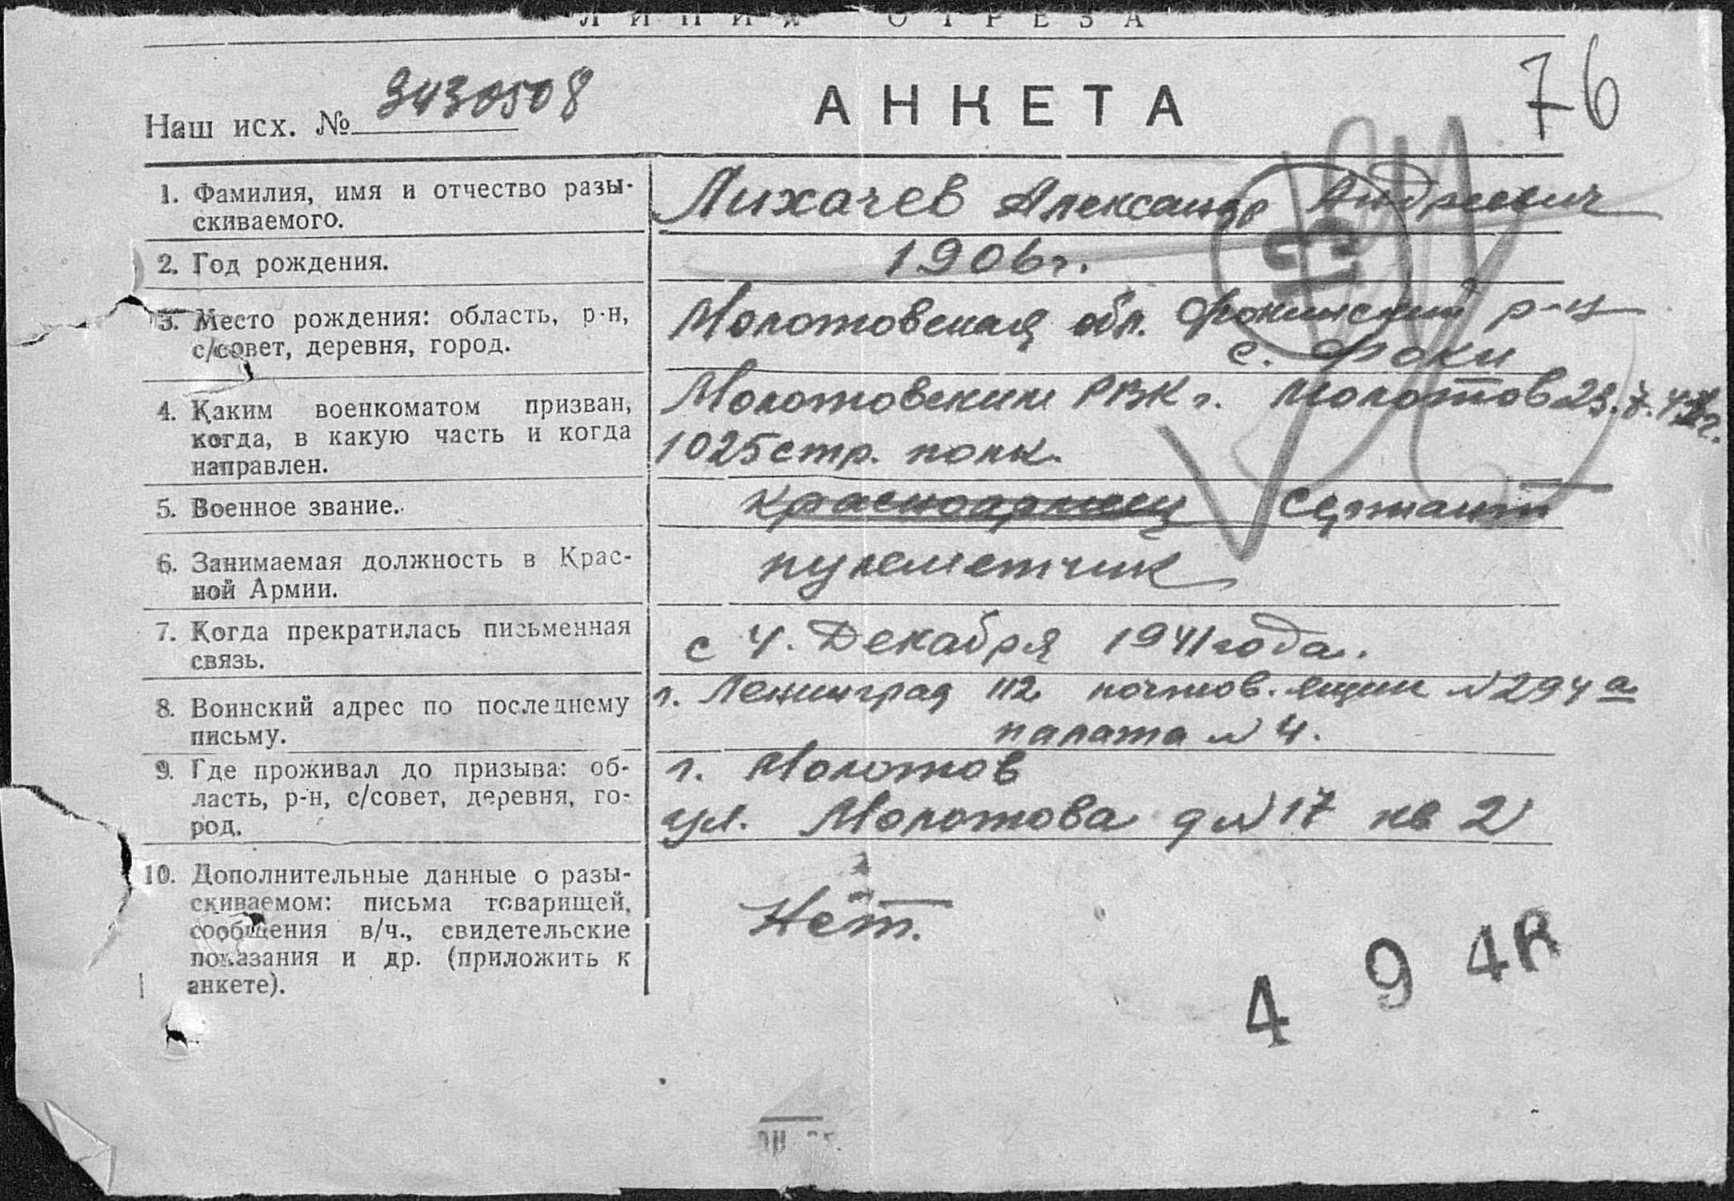 ЛИНИЯ ОТРЕЗА
76
Наш исх. № 9430508
АНКЕТА
1. Фамилия, имя и отчество разы-
скиваемого.
Лихачев Александр Андреевич
2. Год рождения.
1906г.
3. Место рождения: область, р-н,
с/совет, деревня, город.
Молотовская обл. Фокинский р-н
с. Фоки
4. Каким военкоматом призван,
когда, в какую часть и когда
направлен.
Молотовским РВК г. Молотов 23.
1025 стр. полк.
5. Военное звание.
красноармеец сержант
6. Занимаемая должность в Крас-
ной Армии.
пулеметчик
7. Когда прекратилась письменная
связь.
с 4. Декабря 1941 года.
8. Воинский адрес по последнему
письму.
г. Ленинград 112 почтов. ящик №294а
палата №4.
9. Где проживал до призыва: об-
ласть, р-н, с/совет, деревня, го-
род.
г. Молотов
ул. Молотова д №17 кв 2
10. Дополнительные данные о разы-
скиваемом: письма товарищей,
сообщения в/ч., свидетельские
показания и др. (приложить к
анкете).
Нет.
4 9 4